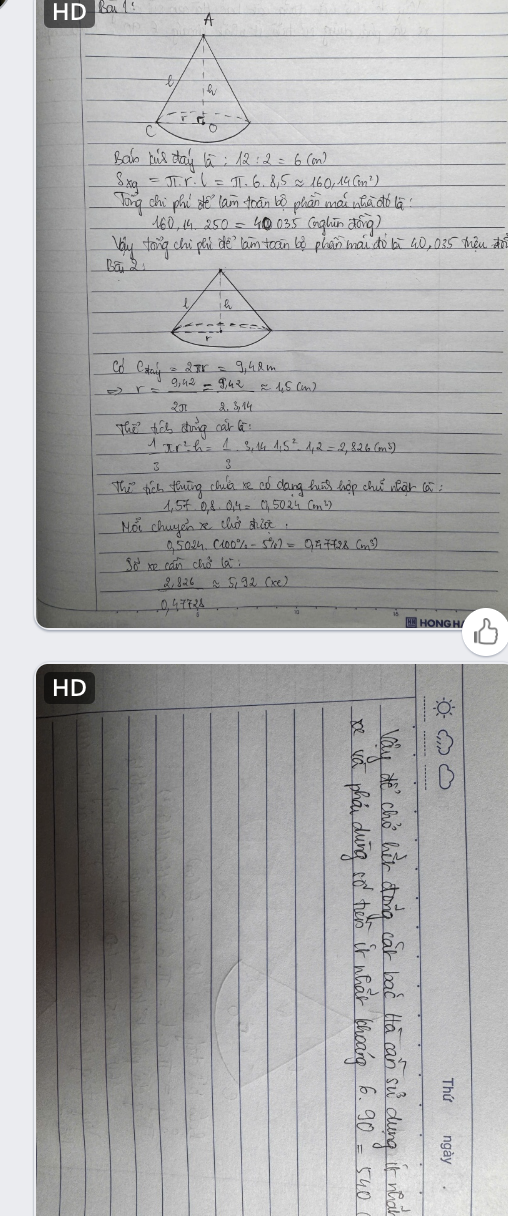 HD
Bài 1:
A
l
h
r
C
O
Bán kính đáy là : 12 : 2 = 6 (m)
Sxq = π.r.l = π.6.8,5 ≈ 160,14 (m²)
Tổng chi phí để làm toàn bộ phần mái nhà đó là :
160,14. 250 = 40 035 (nghìn đồng)
Vậy tổng chi phí để làm toàn bộ phần mái đó là 40,035 triệu
Bài 2:
l
h
r
Có Cđáy = 2πr = 9,42m
=> r = 9,42 = 9,42 ≈ 1,5 (m)
2π 2.3,14
Thể tích đống cát là:
1 πr²h = 1 . 3,14. 1,5² . 1,2 = 2,826 (m³)
3 3
Thể tích thùng chứa xe có dạng hình hộp chữ nhật là :
1,57. 0,8. 0,4 = 0,5024 (m³)
Mỗi chuyến xe chở được :
0,5024. (100% - 5%) = 0,47728 (m³)
Số xe cần chở là :
2,826 ≈ 5,92 (xe)
0,47728
HONG HA
HD
Thứ ngày
Vậy để chở hết đống cát bác Hà cần sử dụng ít
xe và phải dùng số tiền ít nhất khoảng 6. 90 = 540